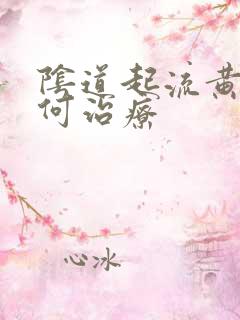 陰道起流黄
何治療
心冰